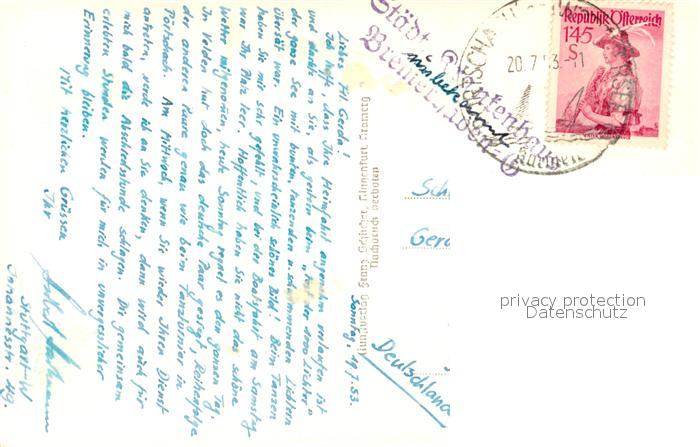 Sonntag, 19.7.53.
Liebes Frl Gerda!
Ich hoffe, dass Ihre Heimfahrt angenehm verlaufen ist
und dachte an Sie, als gestern beim „Fest der 1000 Lichter"
der ganze See mit bunten, tanzenden u. schwimmenden Lichtern
übersät war. Ein unwahrscheinlich schönes Bild! Beim Tanzen
haben Sie mir sehr gefehlt, und bei der Bootsfahrt am Samstag
war Ihr Platz leer. Hoffentlich haben Sie nicht das schöne
Wetter mitgenommen, heute Sonntag regnet es den ganzen Tag.
In Velden hat doch das deutsche Paar gesiegt, Reihenfolge
der anderen Paare genau wie beim Tanzturnier in
Pörtschach. Am Mittwoch, wenn Sie wieder Ihren Dienst
antreten, werde ich an Sie denken, dann wird auch für
mich bald die Abschiedsstunde schlagen. Die gemeinsam
erlebten Stunden werden für mich in unvergesslicher
Erinnerung bleiben.
Mit herzlichen Grüssen
Ihr
Stuttgart-W
Kunstverlag Franz Schilcher, Klagenfurt,
Nachdruck verboten
Städt. Krankenhaus
Bremerhaven
20.7.53.-11
Kärnten
Republik Österreich
1.45
S
Gerd
Deutschland
privacy protection
Datenschutz